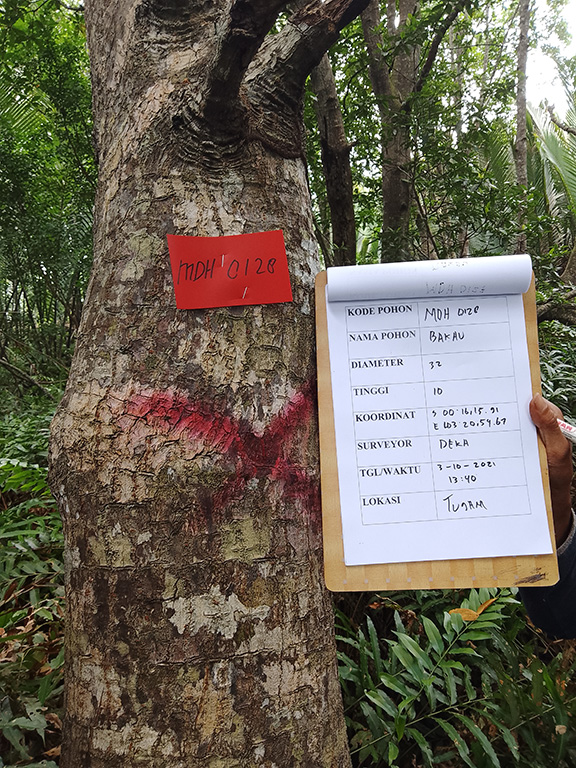 MDH 0128
KODE POHON MDH 0128
NAMA POHON BAKAU
DIAMETER 32
TINGGI 10
KOORDINAT S 00.16,15.91
E 103.20,59.67
SURVEYOR DEKA
TGL/WAKTU 3-10-2021
13:40
LOKASI TUNGAM